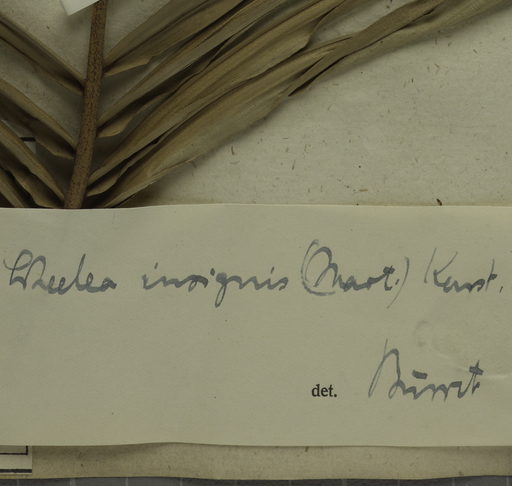 Scheelea insignis (Mart.) Karst.
det. Burret